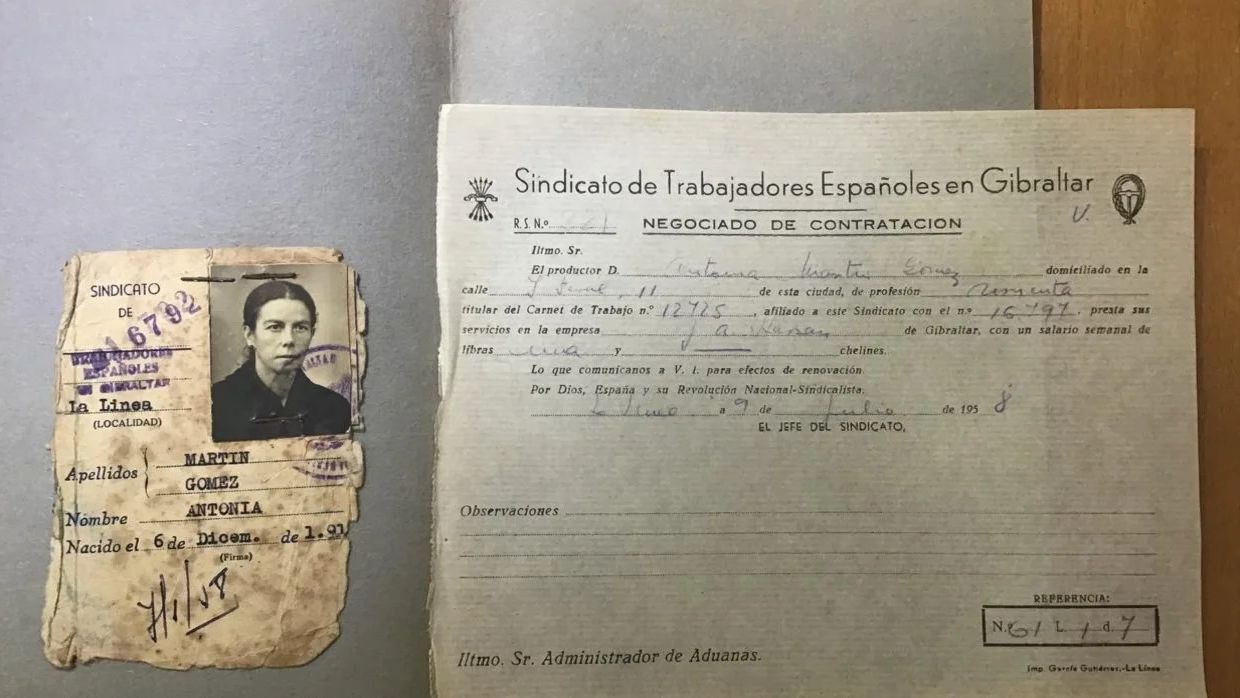 SINDICATO
DE
16792
TRABAJADORES
ESPAÑOLES
EN GIBRALTAR
La Linea
(LOCALIDAD)
Apellidos
MARTIN
GOMEZ
Nombre ANTONIA
Nacido el 6 de Dicem. de 1.91
(Firma)
7/1/58
Sindicato de Trabajadores Españoles en Gibraltar
V.
R. S. N.º 221 NEGOCIADO DE CONTRATACION
Iltmo. Sr.
El productor D. Antonia Martin Gómez domiciliado en la
calle 11 de esta ciudad, de profesión
titular del Carnet de Trabajo n.º 12725, afiliado a este Sindicato con el n.º 16.797, presta sus
servicios en la empresa de Gibraltar, con un salario semanal de
libras una y — chelines.
Lo que comunicamos a V. I. para efectos de renovación.
Por Dios, España y su Revolución Nacional-Sindicalista.
La Linea a 9 de Julio de 1958
EL JEFE DEL SINDICATO,
Observaciones
REFERENCIA:
N.º 61 L. 1 d. 7
Iltmo. Sr. Administrador de Aduanas.
Imp. García Gutiérrez.-La Línea